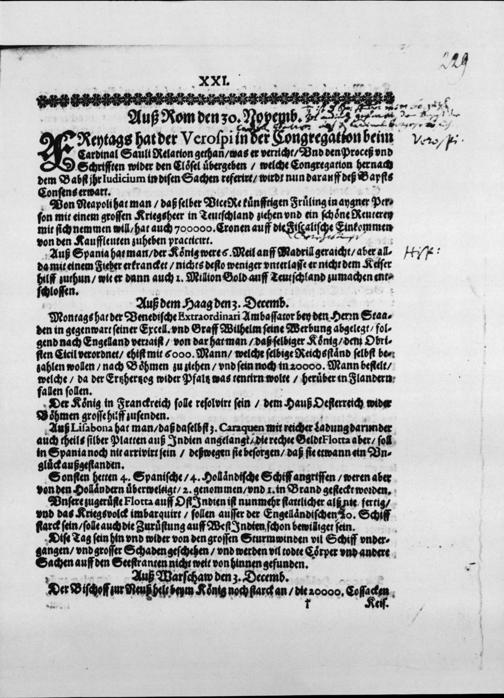 229
XXI.
Auß Rom den 30. Novemb.
FReytags hat der Verospi in der Congregation beim
Cardinal Sauli Relation gethan/was er verricht/Vnd den Proceß vnd
Schrifften wider den Clösel übergeben / welche Congregation hernach
dem Babst jhr Iudicium in disen Sachen referirt/ wirdt nun darauff deß Bapsts
Consens erwart.
Verospi.
Von Neapoli hat man / daß selber ViceRe künfftigen Früling in aygner Per-
son mit einem grossen Kriegsheer in Teutschland ziehen vnd ein schöne Reuterey
mit sich nemmen will/ hat auch 700000. Cronen auff die Fiscalische Einkommen
von den Kauffleuten zuheben practicirt.
Auß Spania hat man/ der König were 6. Meil auff Madrill geraicht/ aber all-
da mit einem Fieber erkrancket / nichts desto weniger vnterlasse er nicht dem Keiser
hilff zuthun/ wie er dann auch 1. Million Gold auff Teutschland zumachen ent-
schlossen.
Auß dem Haag den 3. Decemb.
Montags hat der Venedische Extraordinari Ambassator bey den Herrn Staa-
den in gegenwart seiner Excell. vnd Graff Wilhelm seine Werbung abgelegt/ fol-
gend nach Engelland verraist / von dar hat man/ daß selbiger König/ dem Obri-
sten Cicil verordnet/ ehist mit 6000. Mann/ welche selbige Reichsständ selbst be-
zahlen wollen / nach Böhmen zu ziehen / vnd sein noch in 20000. Mann bestelt/
welche / da der Ertzherzog wider Pfalz was tentirn wolte / herüber in Flandern
fallen sollen.
Der König in Franckreich solle resolvirt sein / dem Hauß Oesterreich wider
Böhmen grosse hilff zusenden.
Auß Lisabona hat man/daß daselbst 3. Caraquen mit reicher Ladung darunder
auch theils silber Platten auß Indien angelangt/ die rechte Geldt Flotta aber/ soll
in Spania noch nit arrivirt sein / deßwegen sie besorgen/ daß sie etwann ein Vn-
glück außgestanden.
Sonsten hetten 4. Spanische/ 4. Holländische Schiff angriffen / weren aber
von den Holländern überweltigt/ 2. genommen/ vnd 1. in Brand gesteckt worden.
Vnsere zugerüste Flotta auff Ost Indien ist nunmehr stattlicher als nie, fertig/
vnd das Kriegsvolck imbarquirt / sollen ausser der Engelländischen 40. Schiff
starck sein/ solle auch die Zurüstung auff West Indien schon bewilliget sein.
Dise Tag sein hin vnd wider von den grossen Sturmwinden vil Schiff vnder-
gangen/ vnd grosser Schaden geschehen / vnd werden vil todte Cörper vnd andere
Sachen auff den Seestranten nicht weit von hinnen gefunden.
Auß Warschaw den 3. Decemb.
Der Bischoff zur Neuß helt beym König noch starck an / die 20000. Cossacken
† Keis.